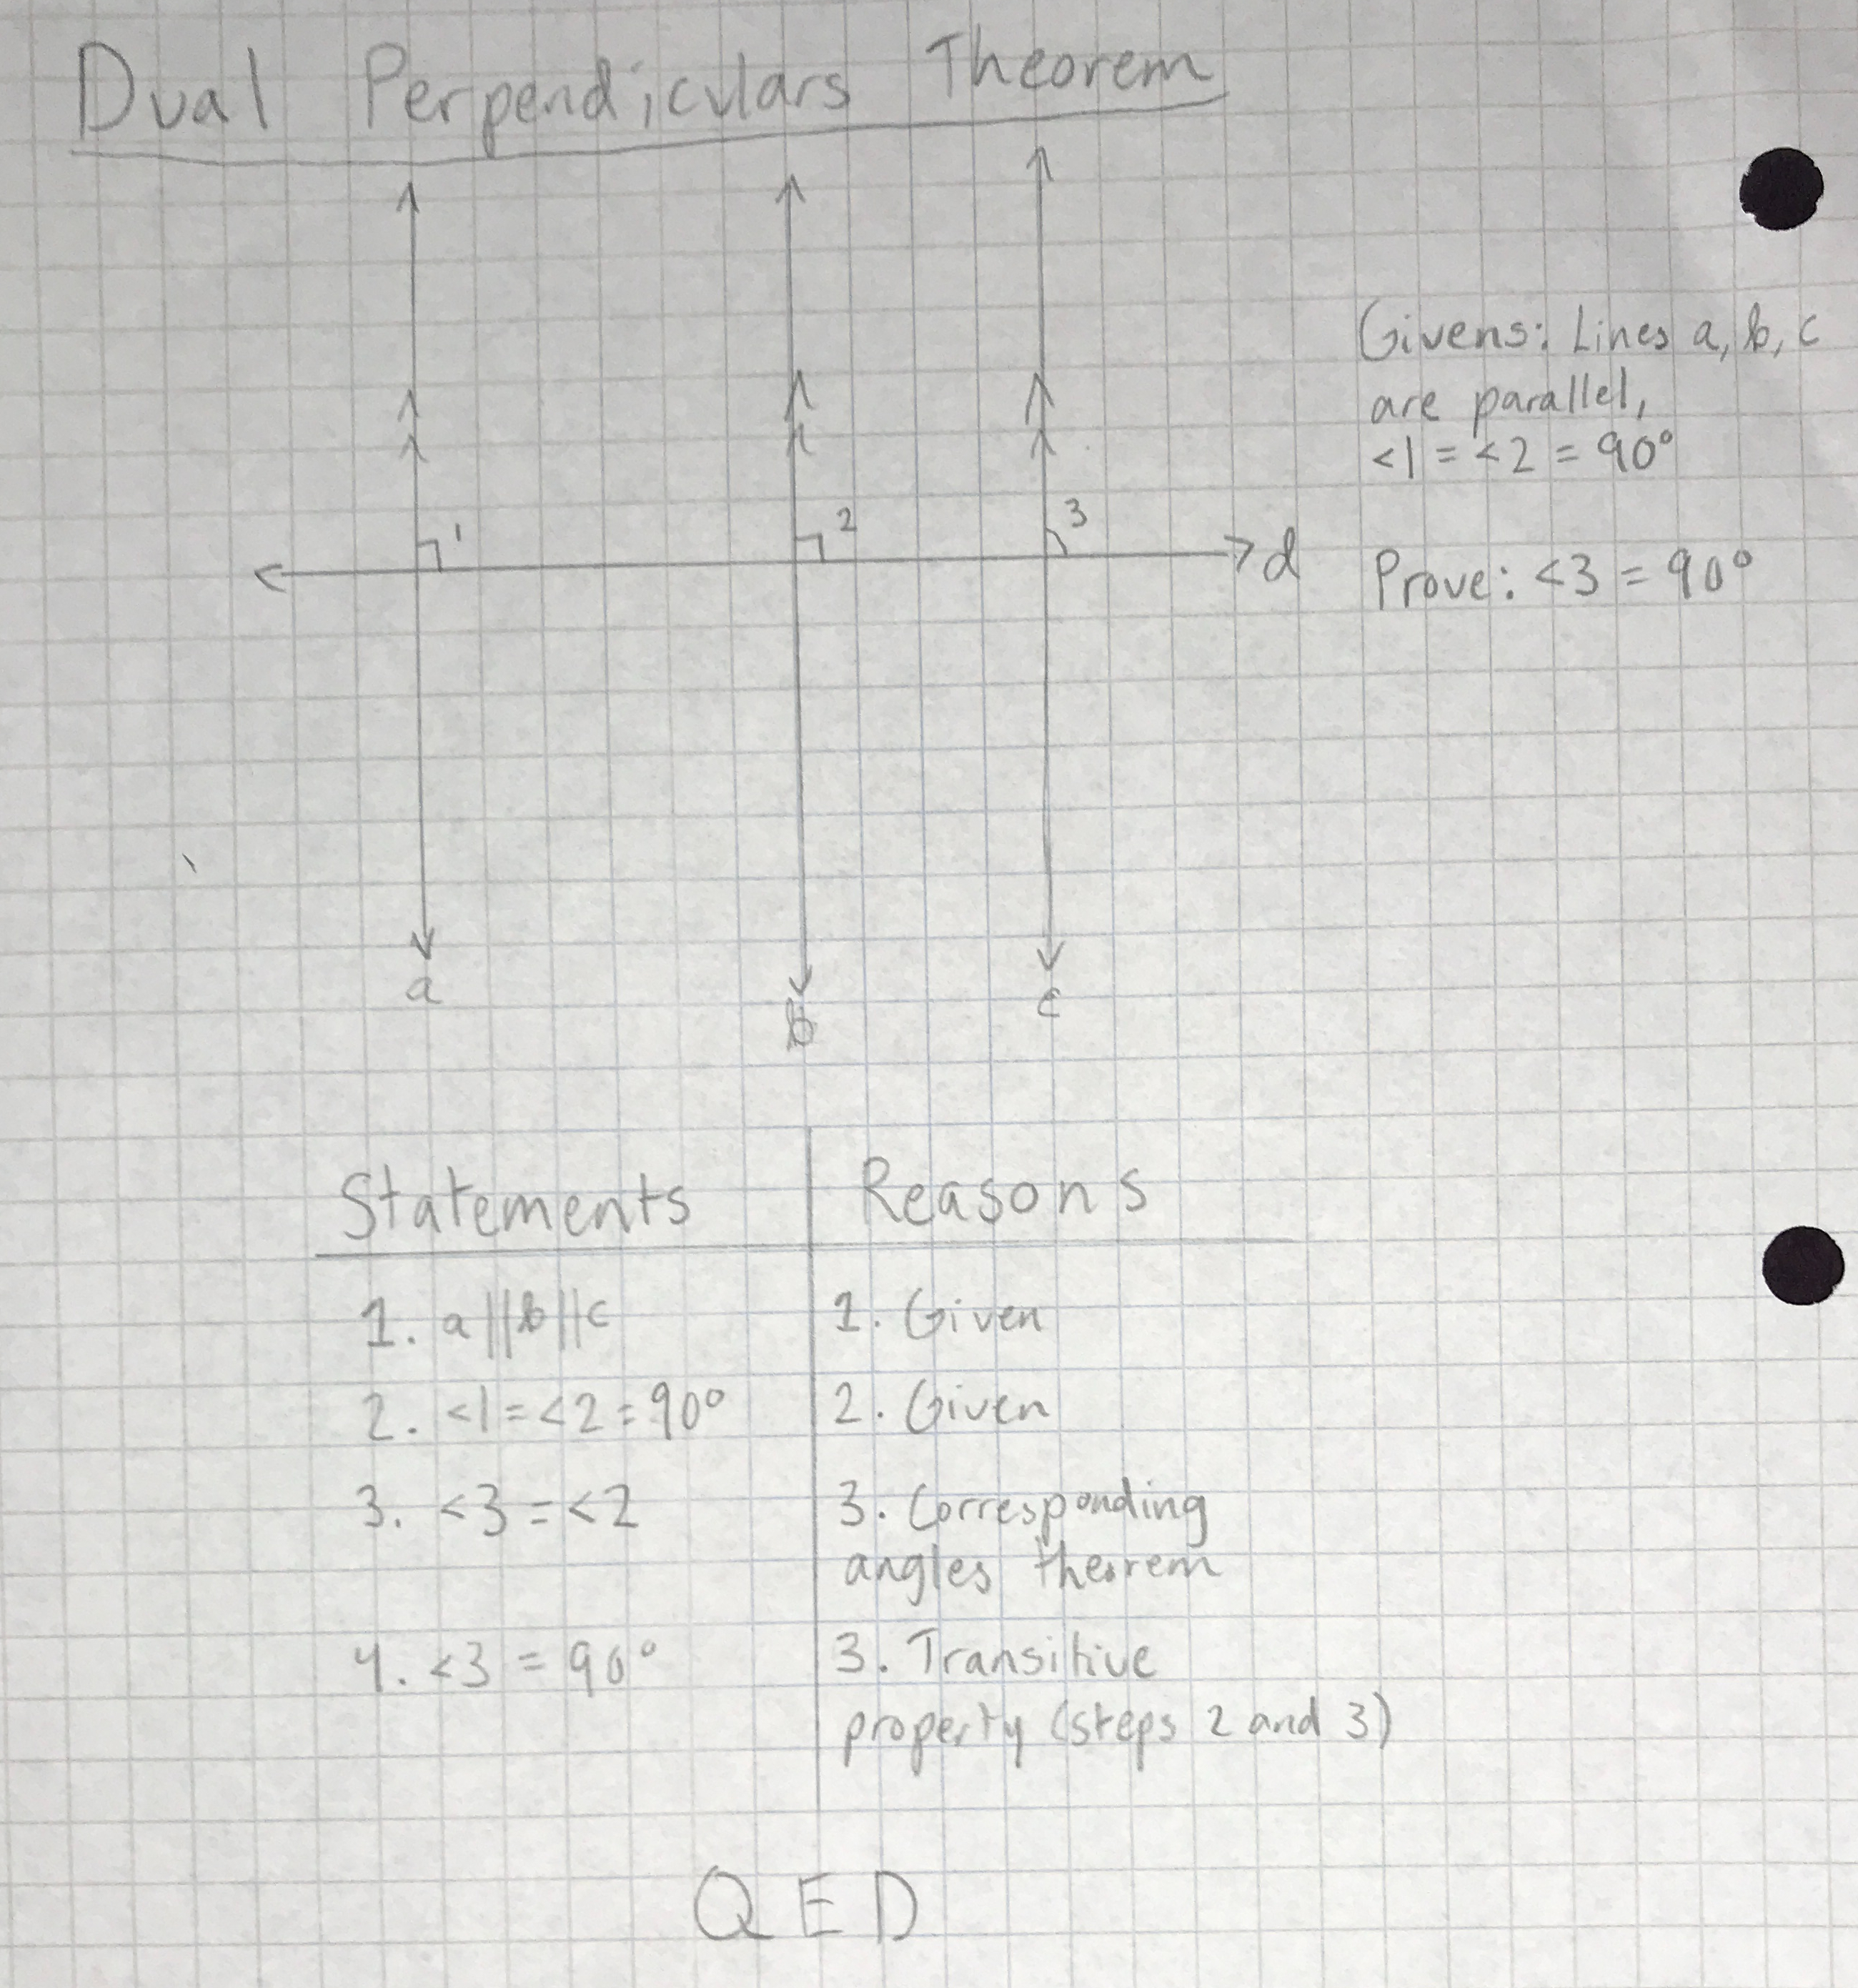 Dual Perpendiculars Theorem
Givens: Lines a, b, c
are parallel,
<1 = <2 = 90°
1
2
3
d
Prove: <3 = 90°
a
b
c
Statements
Reasons
1. a||b||c
1. Given
2. <1 = <2 = 90°
2. Given
3. <3 = <2
3. Corresponding
angles theorem
4. <3 = 90°
3. Transitive
property (steps 2 and 3)
QED